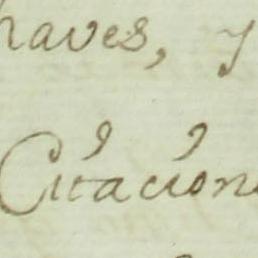 haves, y
Citacion